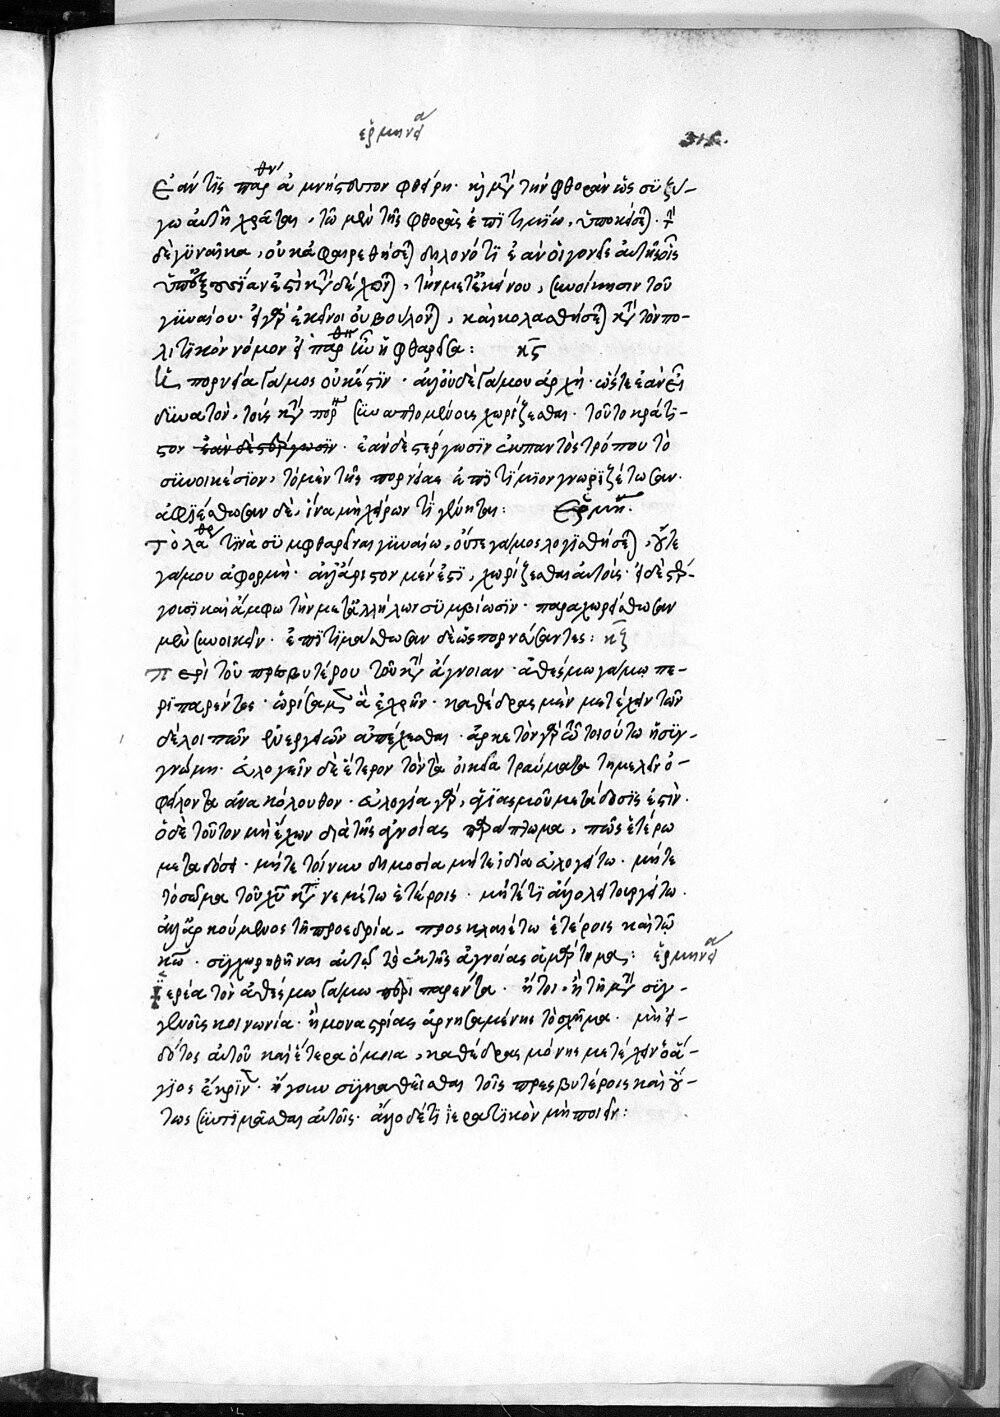 ἑρμηνεία
Ἐάν τις παρθένον ἀμνήστευτον φθείρῃ. καὶ μετὰ τὴν φθορὰν ὡς συζύ-
γῳ αὐτῇ χρᾶται, τῷ μὲν τῆς φθορᾶς ἐπιτιμίῳ, ὑποκείσεται. τὴν
δὲ γυναῖκα, οὐκ ἀφαιρεθήσεται δηλονότι ἐὰν οἱ γονεῖς αὐτῆς οἷς
ὑπεξουσία ἐστὶ καταδέχωνται, τὴν μετ' ἐκείνου, συνοίκησιν τοῦ
γυναίου. εἰ γὰρ ἐκεῖνοι οὐ βούλονται, καὶ κολασθήσεται κατὰ τὸν πο-
λιτικὸν νόμον εἰ παρθένον ἡ φθαρεῖσα: κς
Ἡ πορνεία γάμος οὐκ ἔστιν. ἀλλ' οὐδὲ γάμου ἀρχή. ὥστε ἐὰν ᾖ
δυνατὸν, τοὺς κατὰ πορνείαν συναπτομένους χωρίζεσθαι. τοῦτο κράτι-
στον ἐὰν δὲ στέργωσιν. ἐὰν δὲ στέργωσιν ἐκ παντὸς τρόπου τὸ
συνοικέσιον, τὸ μὲν τῆς πορνείας ἐπιτίμιον γνωριζέτωσαν.
ἀφιέσθωσαν δὲ, ἵνα μὴ χεῖρόν τι γένηται: Ἑρμη.
Τὸ λάθρα τινὰ συμφθαρῆναι γυναίῳ, οὔτε γάμος λογισθήσεται, οὔτε
γάμου ἀφορμή. ἀλλ' ἄριστον μέν ἐστι, χωρίζεσθαι αὐτούς. εἰ δὲ στέρ-
γοισι καὶ ἄμφω τὴν μετ' ἀλλήλων συμβίωσιν. παραχωρείσθωσαν
μὲν συνοικεῖν. ἐπιτιμάσθωσαν δὲ ὡς πορνεύσαντες: κζ
Περὶ τοῦ πρεσβυτέρου τοῦ κατὰ ἄγνοιαν. ἀθέσμῳ γάμῳ πε-
ριπαρέντος. ὡρίσαμεν ἃ ἐχρῆν. καθέδρας μὲν μετέχειν τῶν
δὲ λοιπῶν ἐνεργειῶν ἀπέχεσθαι. ἀρκετὸν γὰρ τῷ τοιούτῳ ἡ συγ-
γνώμη. εὐλογεῖν δὲ ἕτερον τὸν τὰ οἰκεῖα τραύματα τημελεῖν ὀ-
φείλοντα ἀνακόλουθον. εὐλογία γὰρ, ἁγιασμοῦ μετάδοσίς ἐστιν.
ὁ δὲ τοῦτον μὴ ἔχων διὰ τῆς ἀγνοίας παράπτωμα, πῶς ἑτέρῳ
μεταδώσει. μήτε τοίνυν δημοσίᾳ μήτε ἰδίᾳ εὐλογείτω. μήτε
τὸ σῶμα τοῦ χυ κατανεμέτω ἑτέροις. μήτέ τι ἄλλο λειτουργείτω.
ἀλλ' ἀρκούμενος τῇ προεδρίᾳ. προσκλαιέτω ἑτέροις καὶ τῷ
κω. συγχωρηθῆναι αὐτῷ τὸ ἐκ τῆς ἀγνοίας ἁμάρτημα: ἑρμηνεία
Ἱερέα τὸν ἀθέσμῳ γάμῳ περιπαρέντα. ἤτοι, ἢ τῇ κατὰ συγ-
γενοῖς κοινωνίᾳ. ἢ μοναστρίας ἀρνησαμένης τὸ σχῆμα. μὴ εἰ-
δότος αὐτοῦ καὶ ἕτερα ὅμοια, καθέδρας μόνης μετέχειν ὁ ἅ-
γιος ἔκρινεν. ἤγουν συγκαθεῖσθαι τοῖς πρεσβυτέροις καὶ οὕ-
τως συντιμᾶσθαι αὐτοῖς. ἄλλο δέ τι ἱερατικὸν μὴ ποιεῖν: